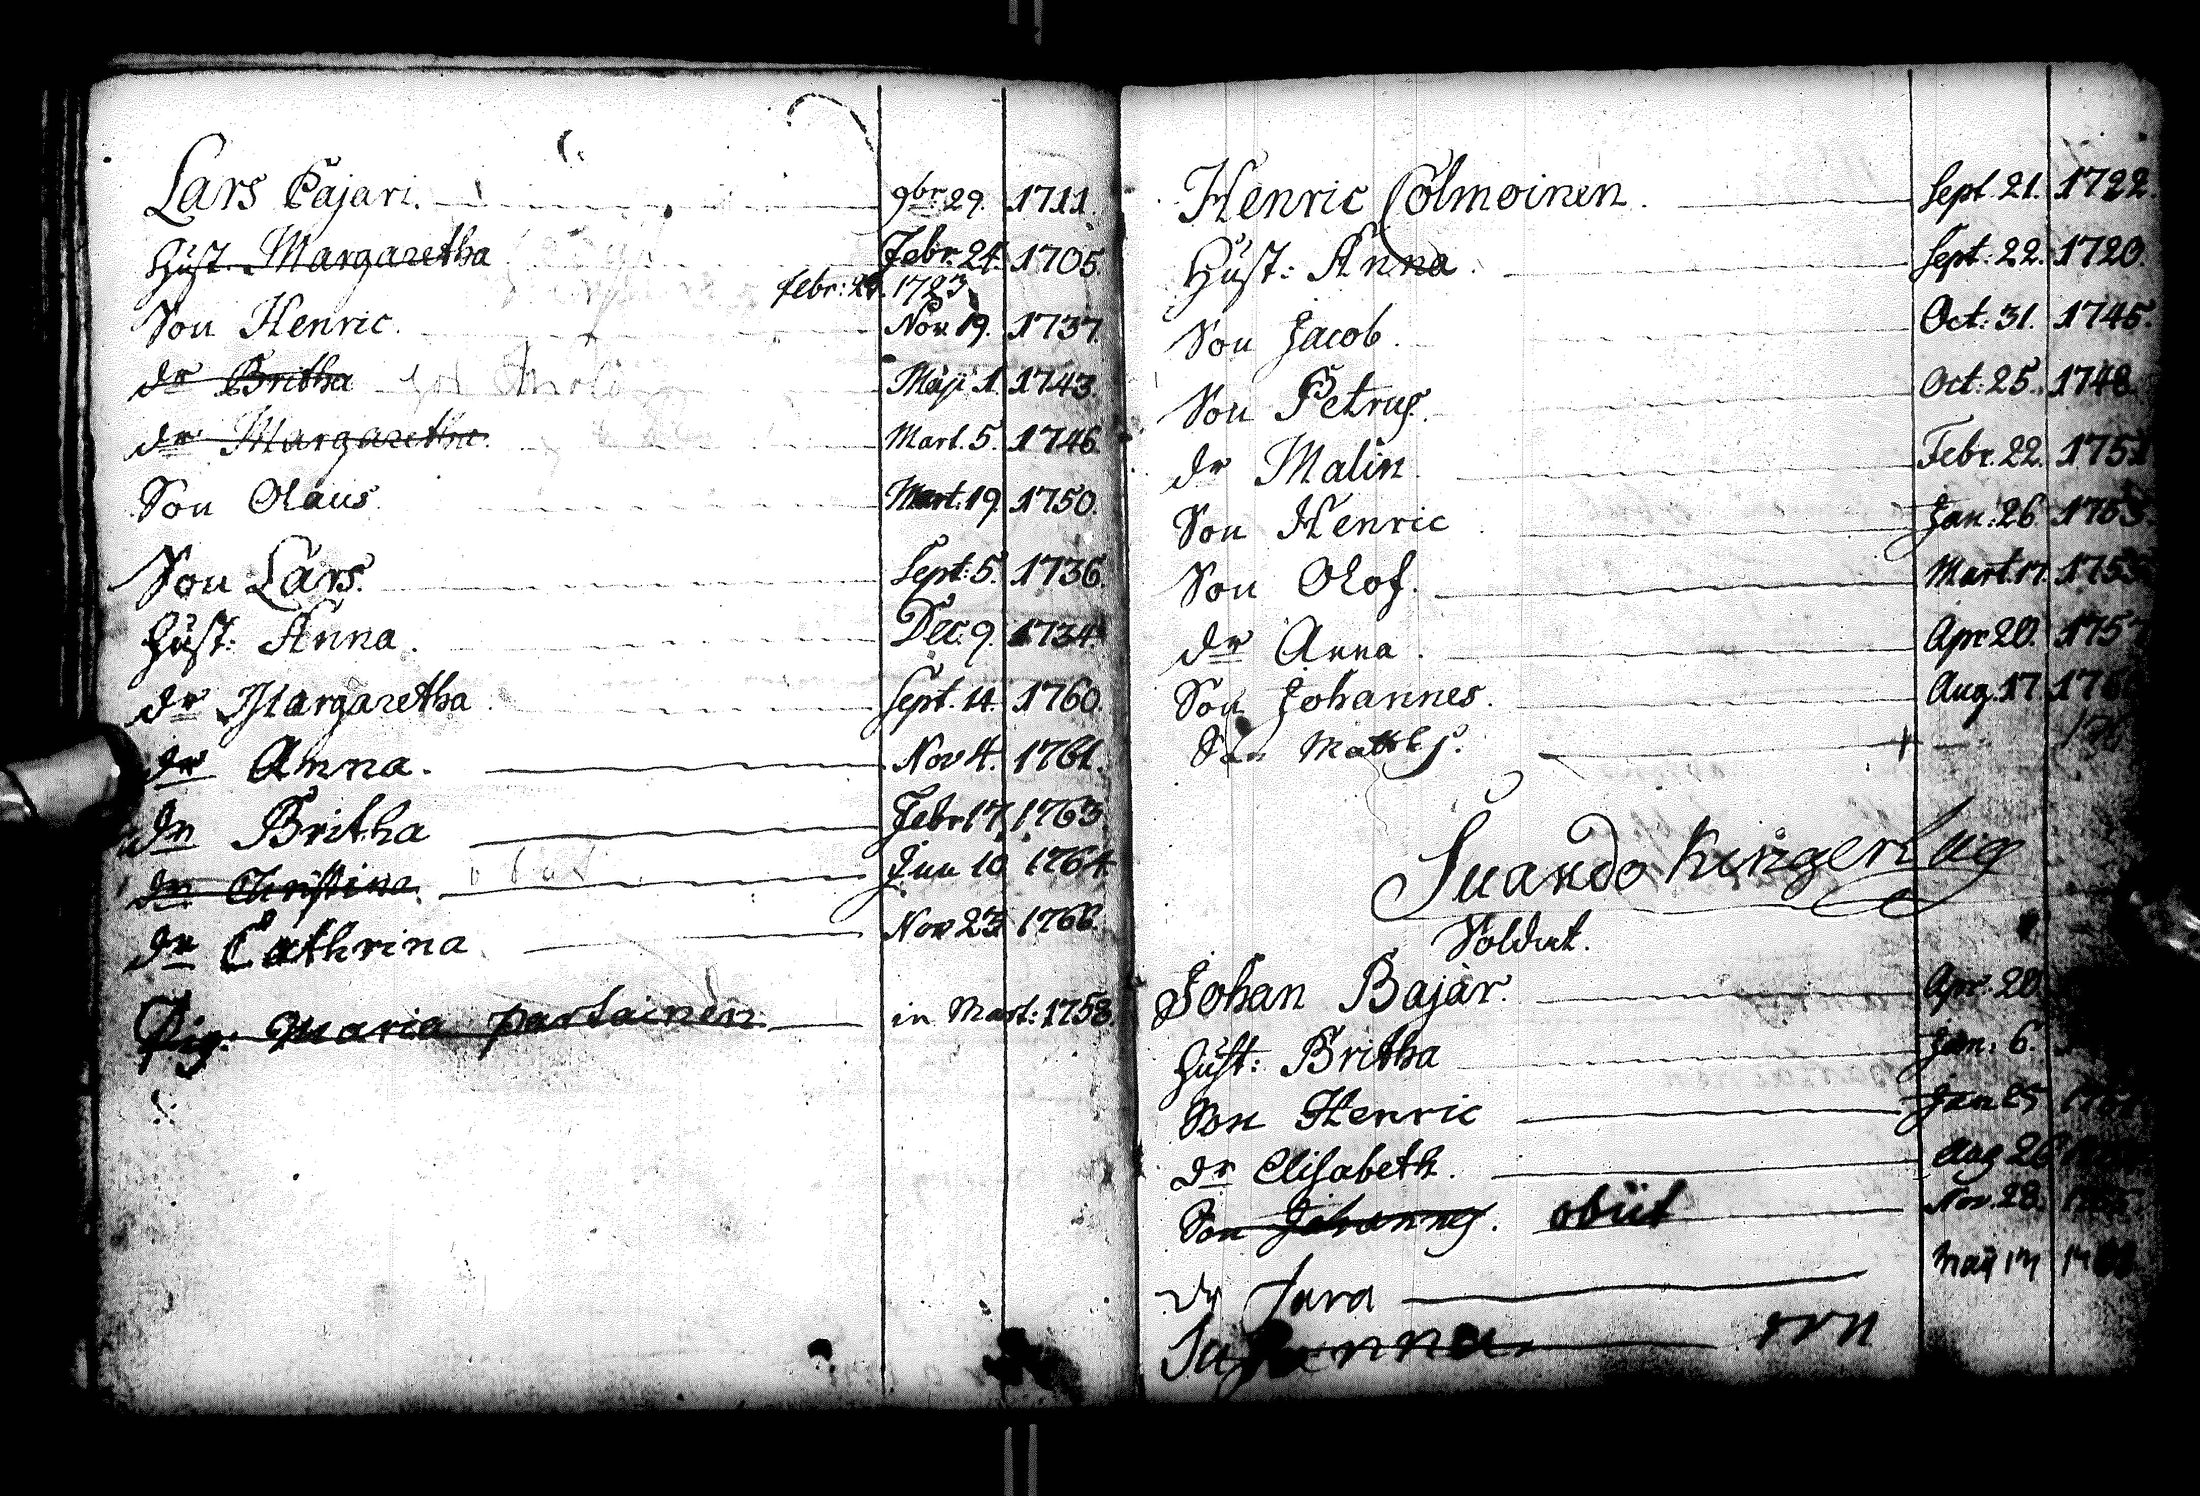 Lars Pajari. 9br. 29. 1711.
Hust. Margaretha Febr. 24. 1705.
febr: 1723
Son Henric. Nov. 19. 1737.
dr Britha Maji 1. 1743.
dr Margaretha. Mart. 5. 1746.
Son Olaus. Mart. 19. 1750.
Son Lars. Sept. 5. 1736.
Hust: Anna. Dec. 9. 1734.
dr Margaretha. Sept. 14. 1760.
dr Anna. Nov 4. 1761.
dr Britha Febr 17, 1763
dr Christina. Jun 10 1764
dr Cathrina Nov 23 1766.
Pig: Maria Partainen in Mart: 1758.
Henric Colmoinen. Sept. 21. 1722.
Hust: Anna. Sept. 22. 1720.
Son Jacob. Oct: 31. 1745.
Son Petrus. Oct: 25. 1748.
dr Malin. Febr. 22.
Son Henric Jan: 26
Son Olof. Mart. 17.
dr Anna. Apr 20. 1757
Son Johannes. Aug. 17
Son Matths.
Suando Kingerlag
Soldat.
Johan Bajar. Apr. 20.
Hust: Britha Jan: 6.
Son Henric Jan 25
dr Elisabeth. Aug 26
Son Johannes. obiit Nov. 28.
dr Sara